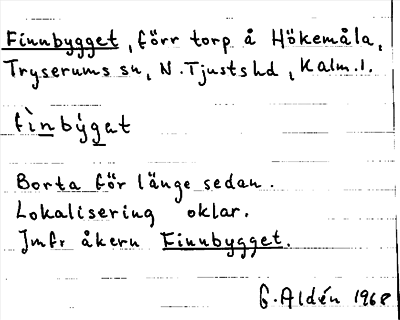 Finnbygget, förr torp å Hökemåla,
Tryserums sn, N. Tjusts hd, Kalm. l.
fìnbýgat
Borta för länge sedan.
Lokalisering oklar.
Jmfr åkern Finnbygget.
G. Aldén 1968